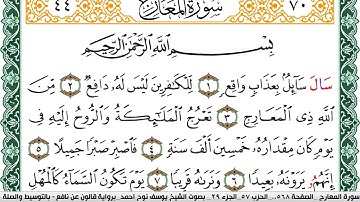 ٤٤ سورة المعارج ٧٠
بِسْمِ اللَّهِ الرَّحْمَٰنِ الرَّحِيمِ
سَالَ سَآئِلٌۢ بِعَذَابٖ وَاقِعٖ ١ لِّلْكَٰفِرِينَ لَيْسَ لَهُۥ دَافِعٞ ٢ مِّنَ
اَ۬للَّهِ ذِي اِ۬لْمَعَارِجِ ٣ تَعْرُجُ اُ۬لْمَلَٰٓئِكَةُ وَالرُّوحُ إِلَيْهِ فِي
يَوْمٖ كَانَ مِقْدَارُهُۥ خَمْسِينَ أَلْفَ سَنَةٖ ٤ فَاصْبِرْ صَبْراٗ جَمِيلاًۖ ٥
إِنَّهُمْ يَرَوْنَهُۥ بَعِيداٗ ٦ وَنَر۪ىٰهُ قَرِيباٗۖ ٧ يَوْمَ تَكُونُ اُ۬لسَّمَآءُ كَالْمُهْلِ
سورة المعارج الصفحة ٥٦٨ الحزب ٥٧ الجزء ٢٩ بصوت الشيخ يوسف نوح أحمد برواية قالون عن نافع - بالتوسيط والصلة